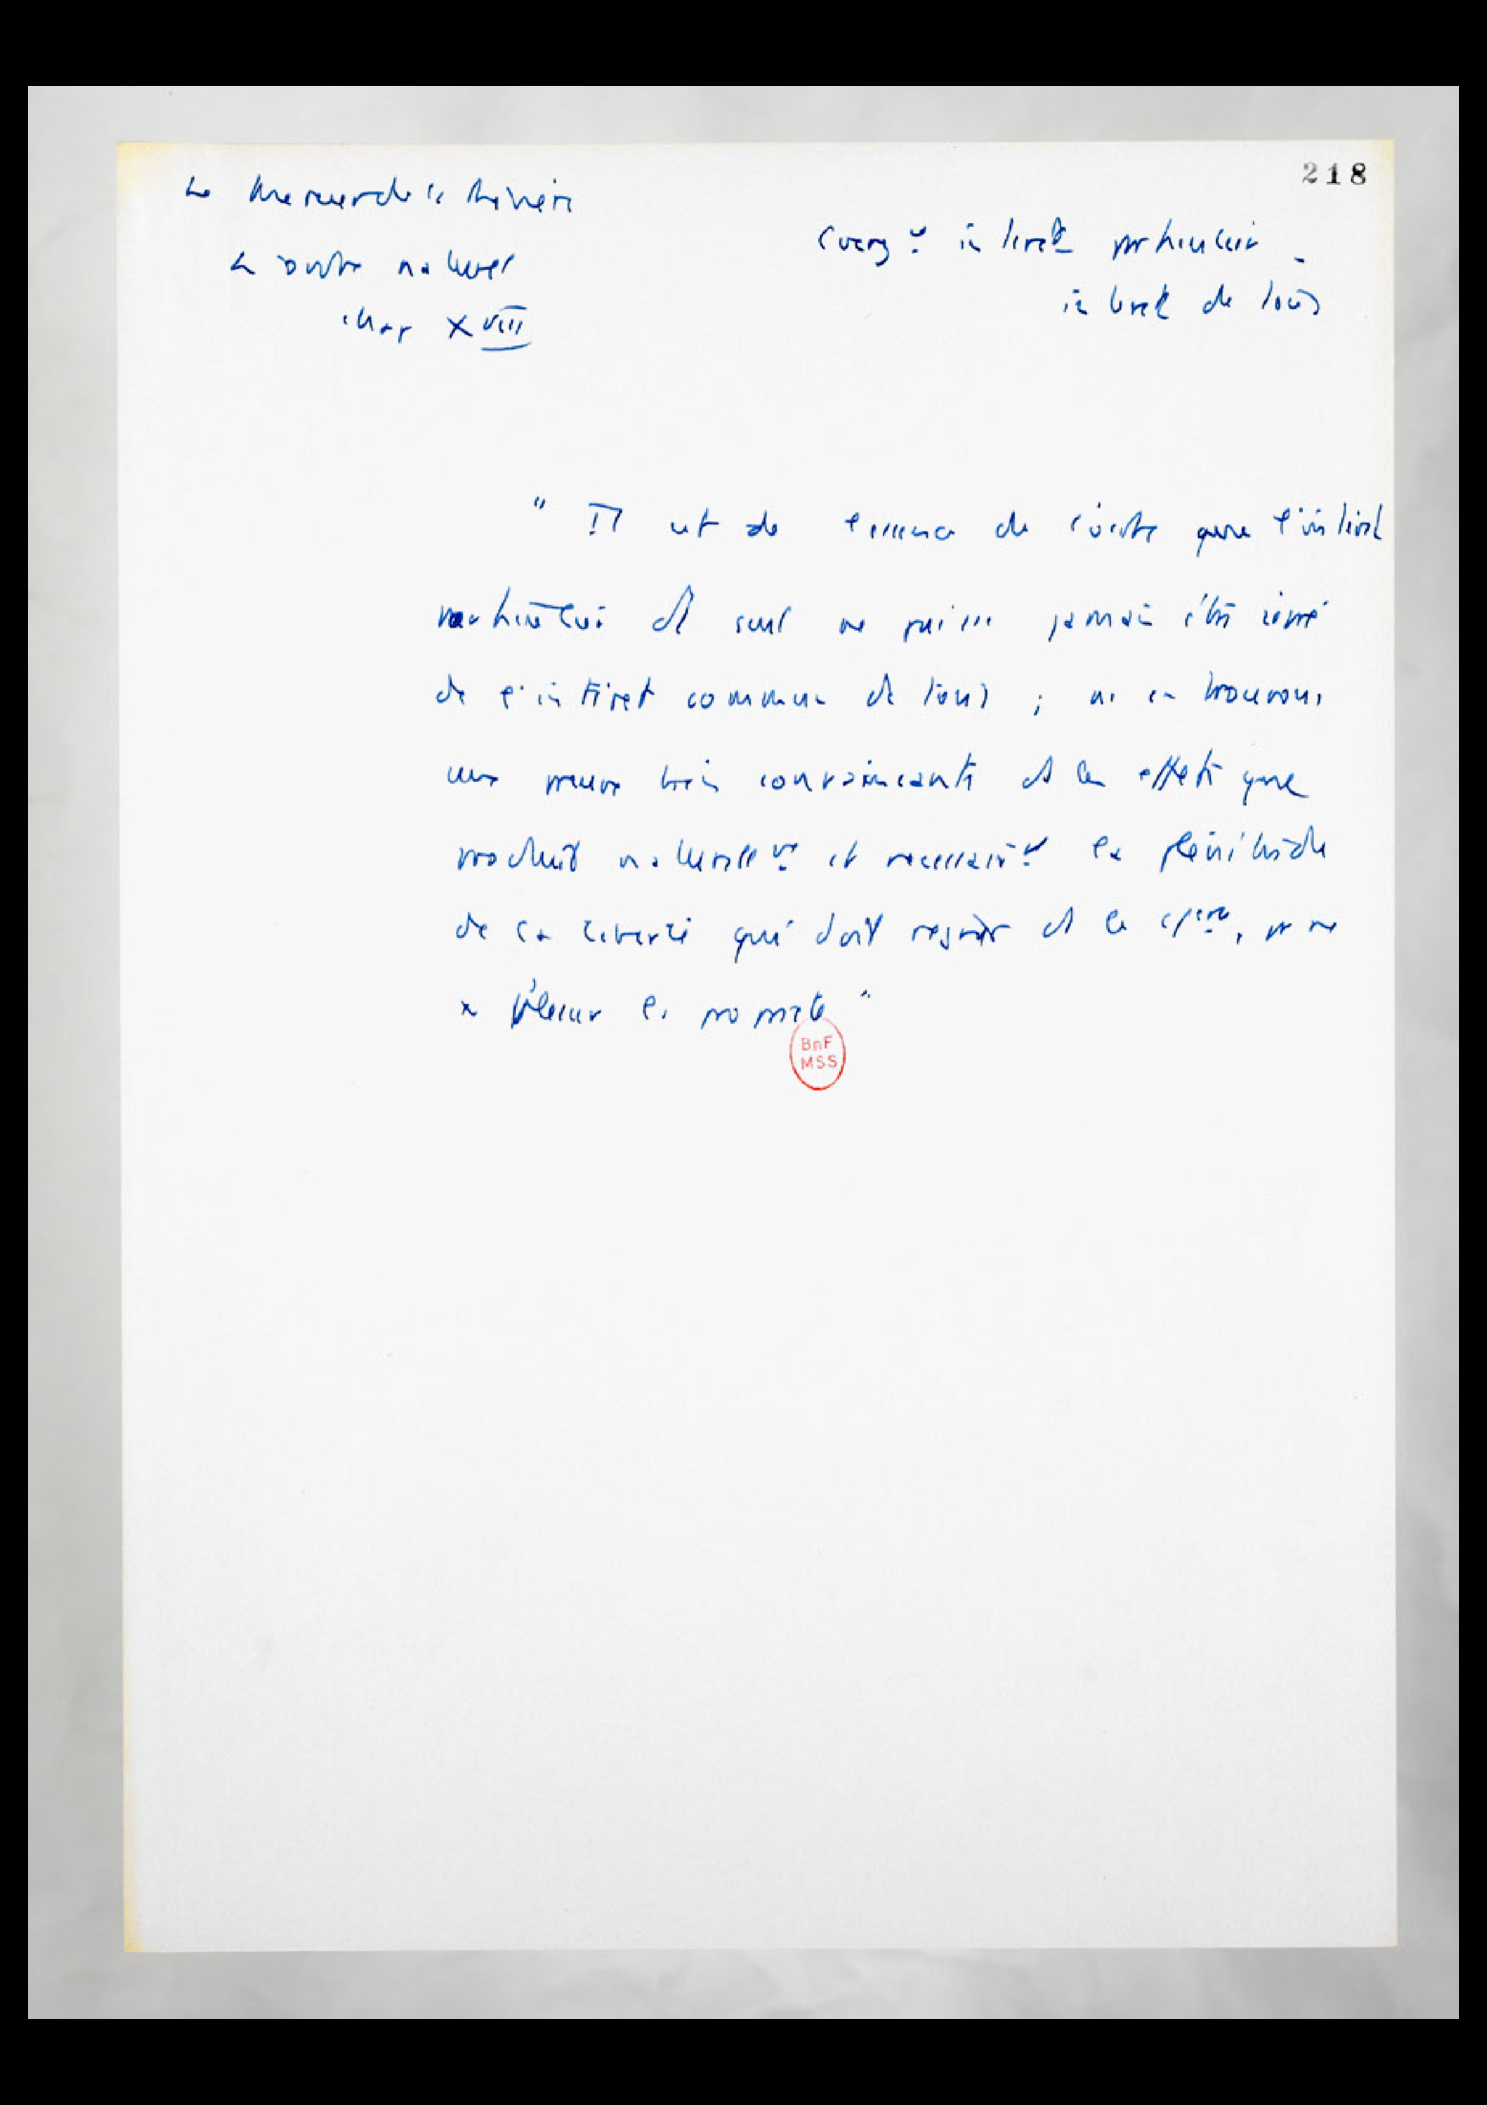 218
Le Mercier de la Rivière
L'ordre naturel
chap XVIII
intérêt particulier -
intérêt de tous
" Il est de l'essence de l'ordre que l'intérêt
particulier d'1 seul ne puisse jamais être séparé
de l'intérêt commun de tous ; ns en trouvons
une preuve très convaincante ds les effets que
produit naturellemt et nécessairemt la plénitude
de la liberté qui doit régner ds le cperce, pr ne
pas blesser la propriété "
BnF
MSS